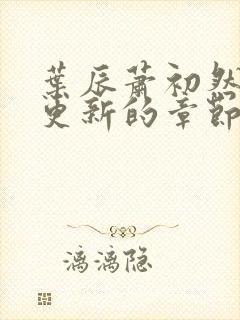 葉辰蕭初然
更新的章節
漓漓隐